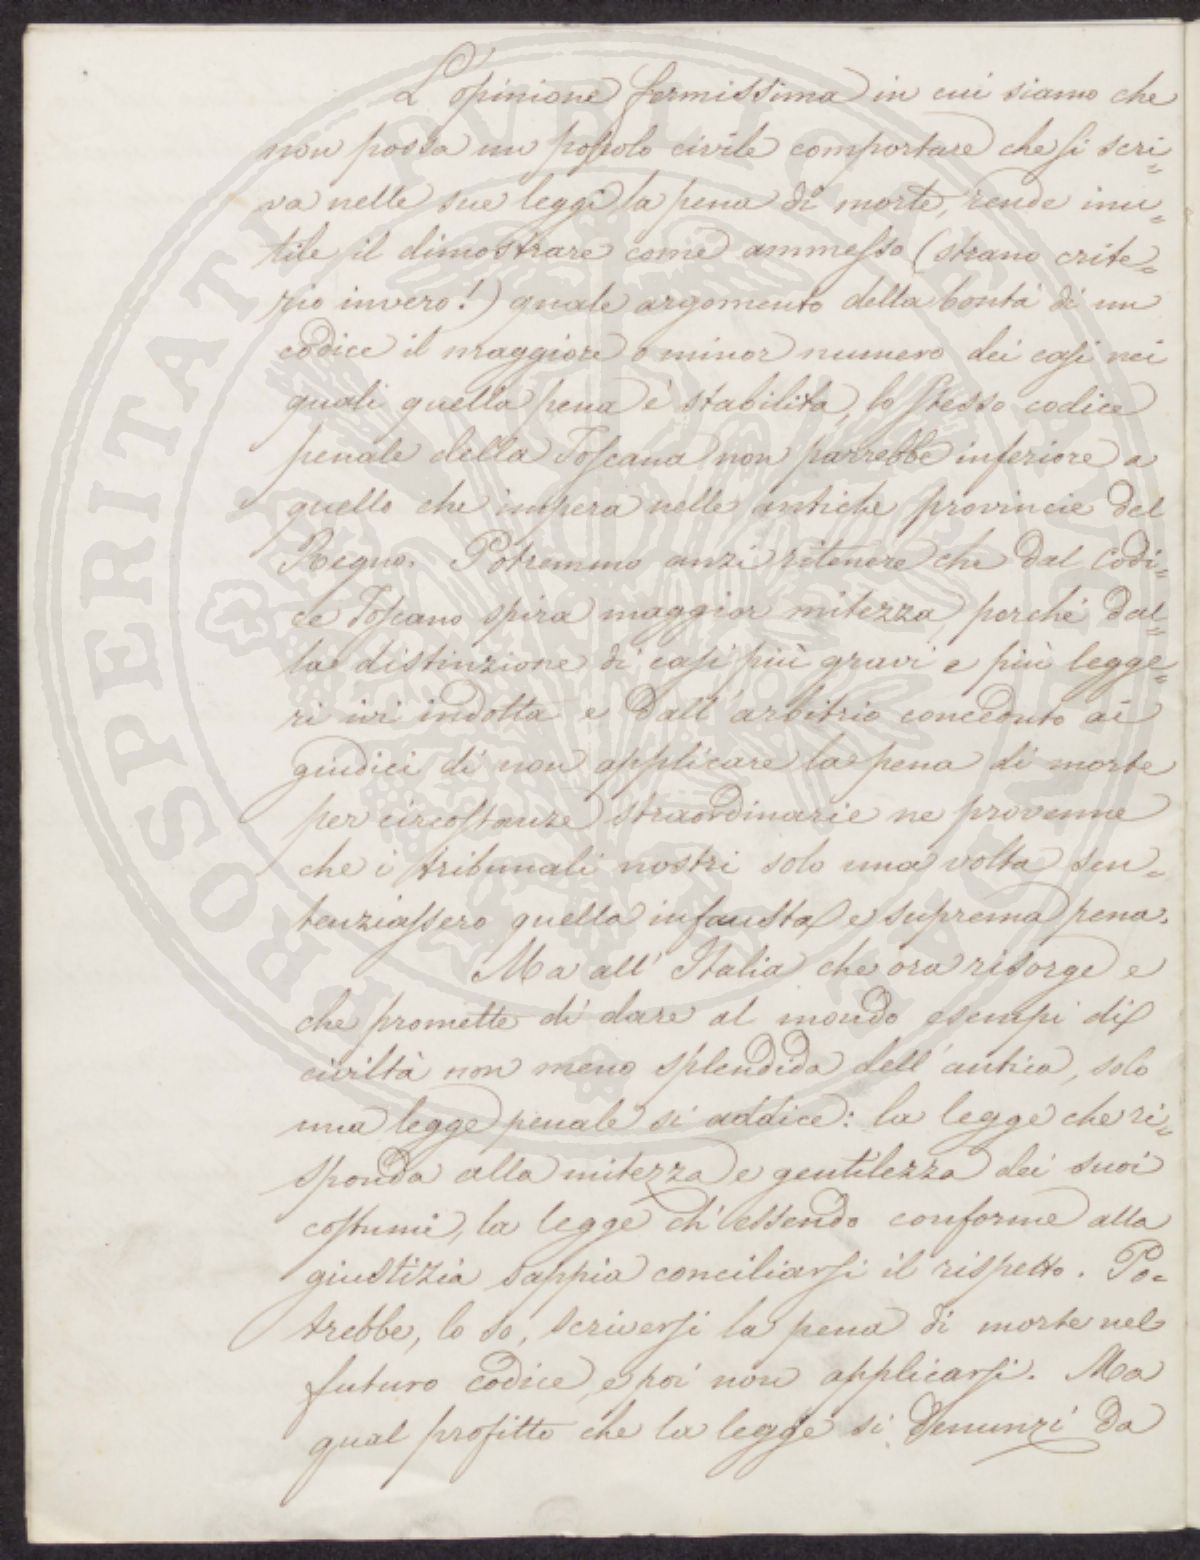 L'opinione fermissima in cui siamo che
non possa un popolo civile comportare che si scri=
va nelle sue leggi la pena di morte, rende inu=
tile il dimostrare come ammesso (strano crite=
rio invero!) quale argomento della bontà di un
codice il maggiore o minor numero dei casi nei
quali quella pena è stabilita, lo stesso codice
penale della Toscana non parrebbe inferiore a
quello che impera nelle antiche provincie del
Regno. Potremmo anzi ritenere che dal Codi=
ce Toscano spira maggior mitezza, perché dal=
la distinzione di casi più gravi e più legge=
ri ivi indotta e dall'arbitrio conceduto ai
giudici di non applicare la pena di morte
per circostanze straordinarie ne provenne
che i tribunali nostri solo una volta sen=
tenziassero quella infausta e suprema pena.
Ma all'Italia che ora risorge e
che promette di dare al mondo esempi di
civiltà non meno splendida dell'antica, solo
una legge penale si addice: la legge che ri=
sponda alla mitezza e gentilezza dei suoi
costumi, la legge ch'essendo conforme alla
giustizia sappia conciliarsi il rispetto. Po=
trebbe, lo so, scriversi la pena di morte nel
futuro codice, e poi non applicarsi. Ma
qual profitto che la legge si denunzi da
PROSPERITATI PUBLICAE